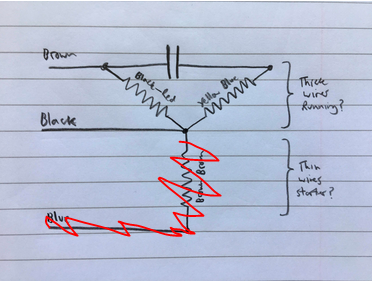 Brown
Black-Red
Yellow Blue
Thick
wires
Running?
Black
Brown
Thin
wires
starter?
Blue